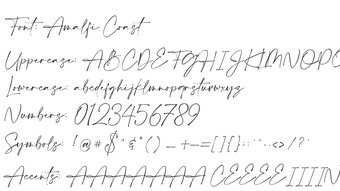 Font: Amalfi Coast
Uppercase: ABCDEFGHIJKLMNOPQ
Lowercase: abcdefghijklmnopqrstuvwxyz
Numbers: 0123456789
Symbols: ! @ # $ " & " ( ) _ + - = [ ] { } : ; " ' . , < > / ?
Accents: A A A A A A A C E E E E I I I I N